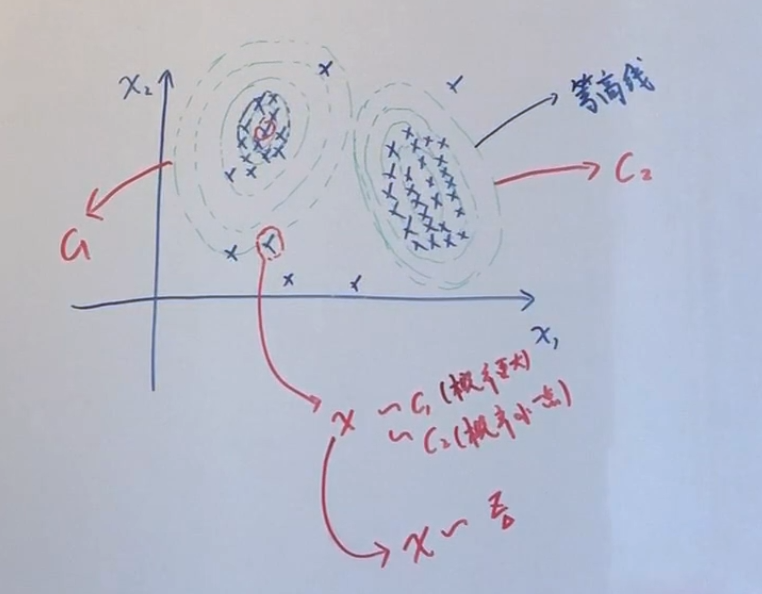 x₂
等高线
C₂
C₁
x₁
x ~ C₁ (概率更大)
~ C₂ (概率小一点)
x ~ z